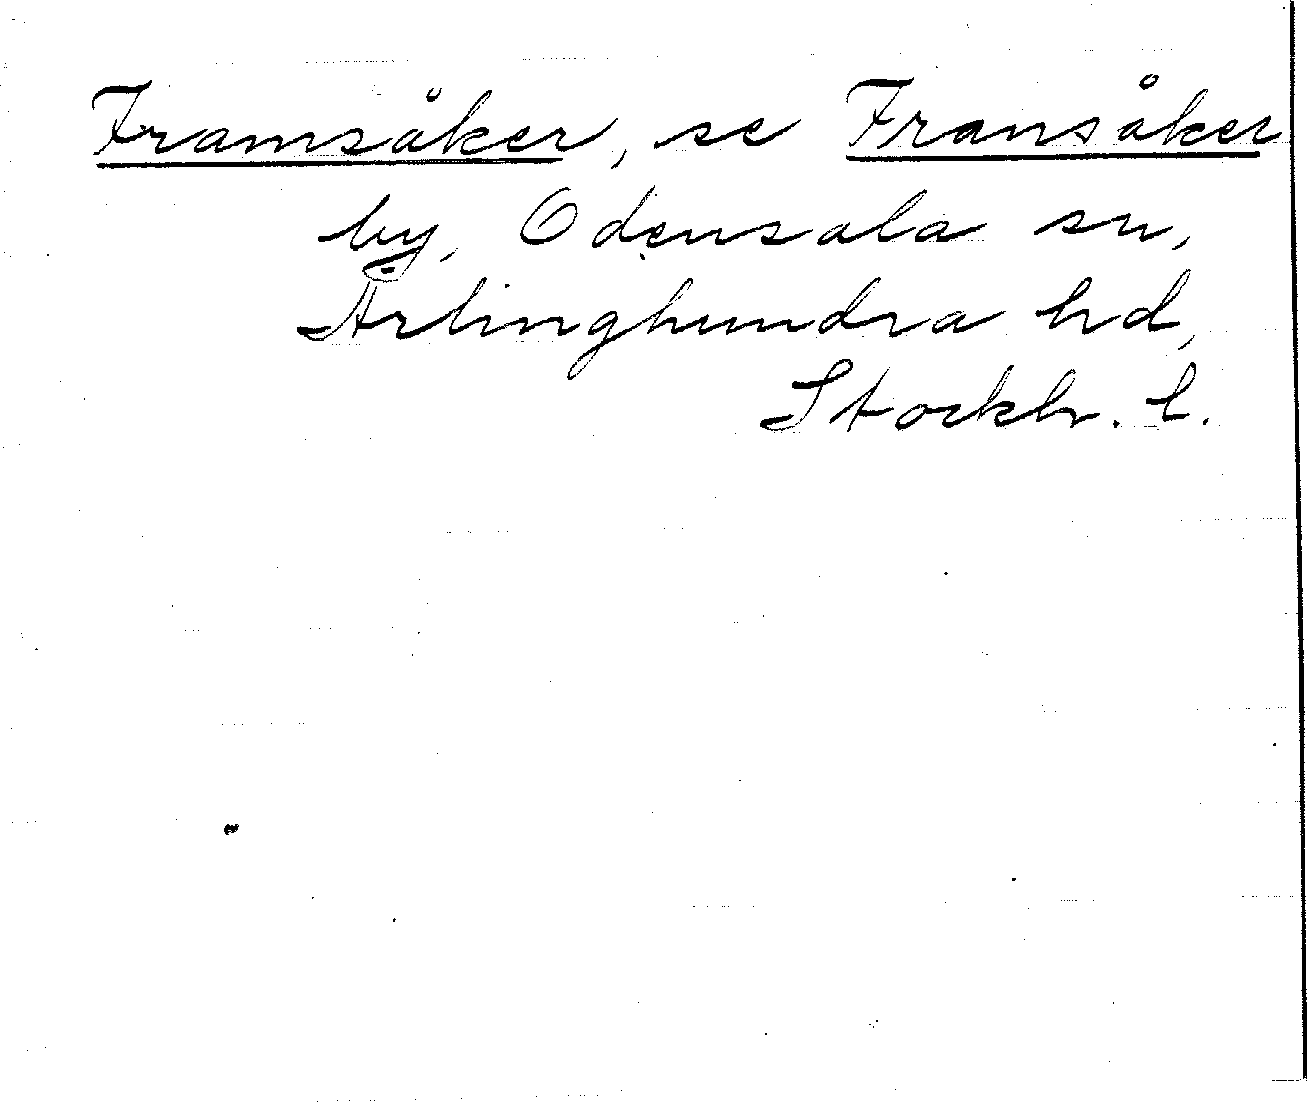 Framsåker, se Fransåker
by, Odensala sn,
Ärlinghundra hd,
Stockh. l.